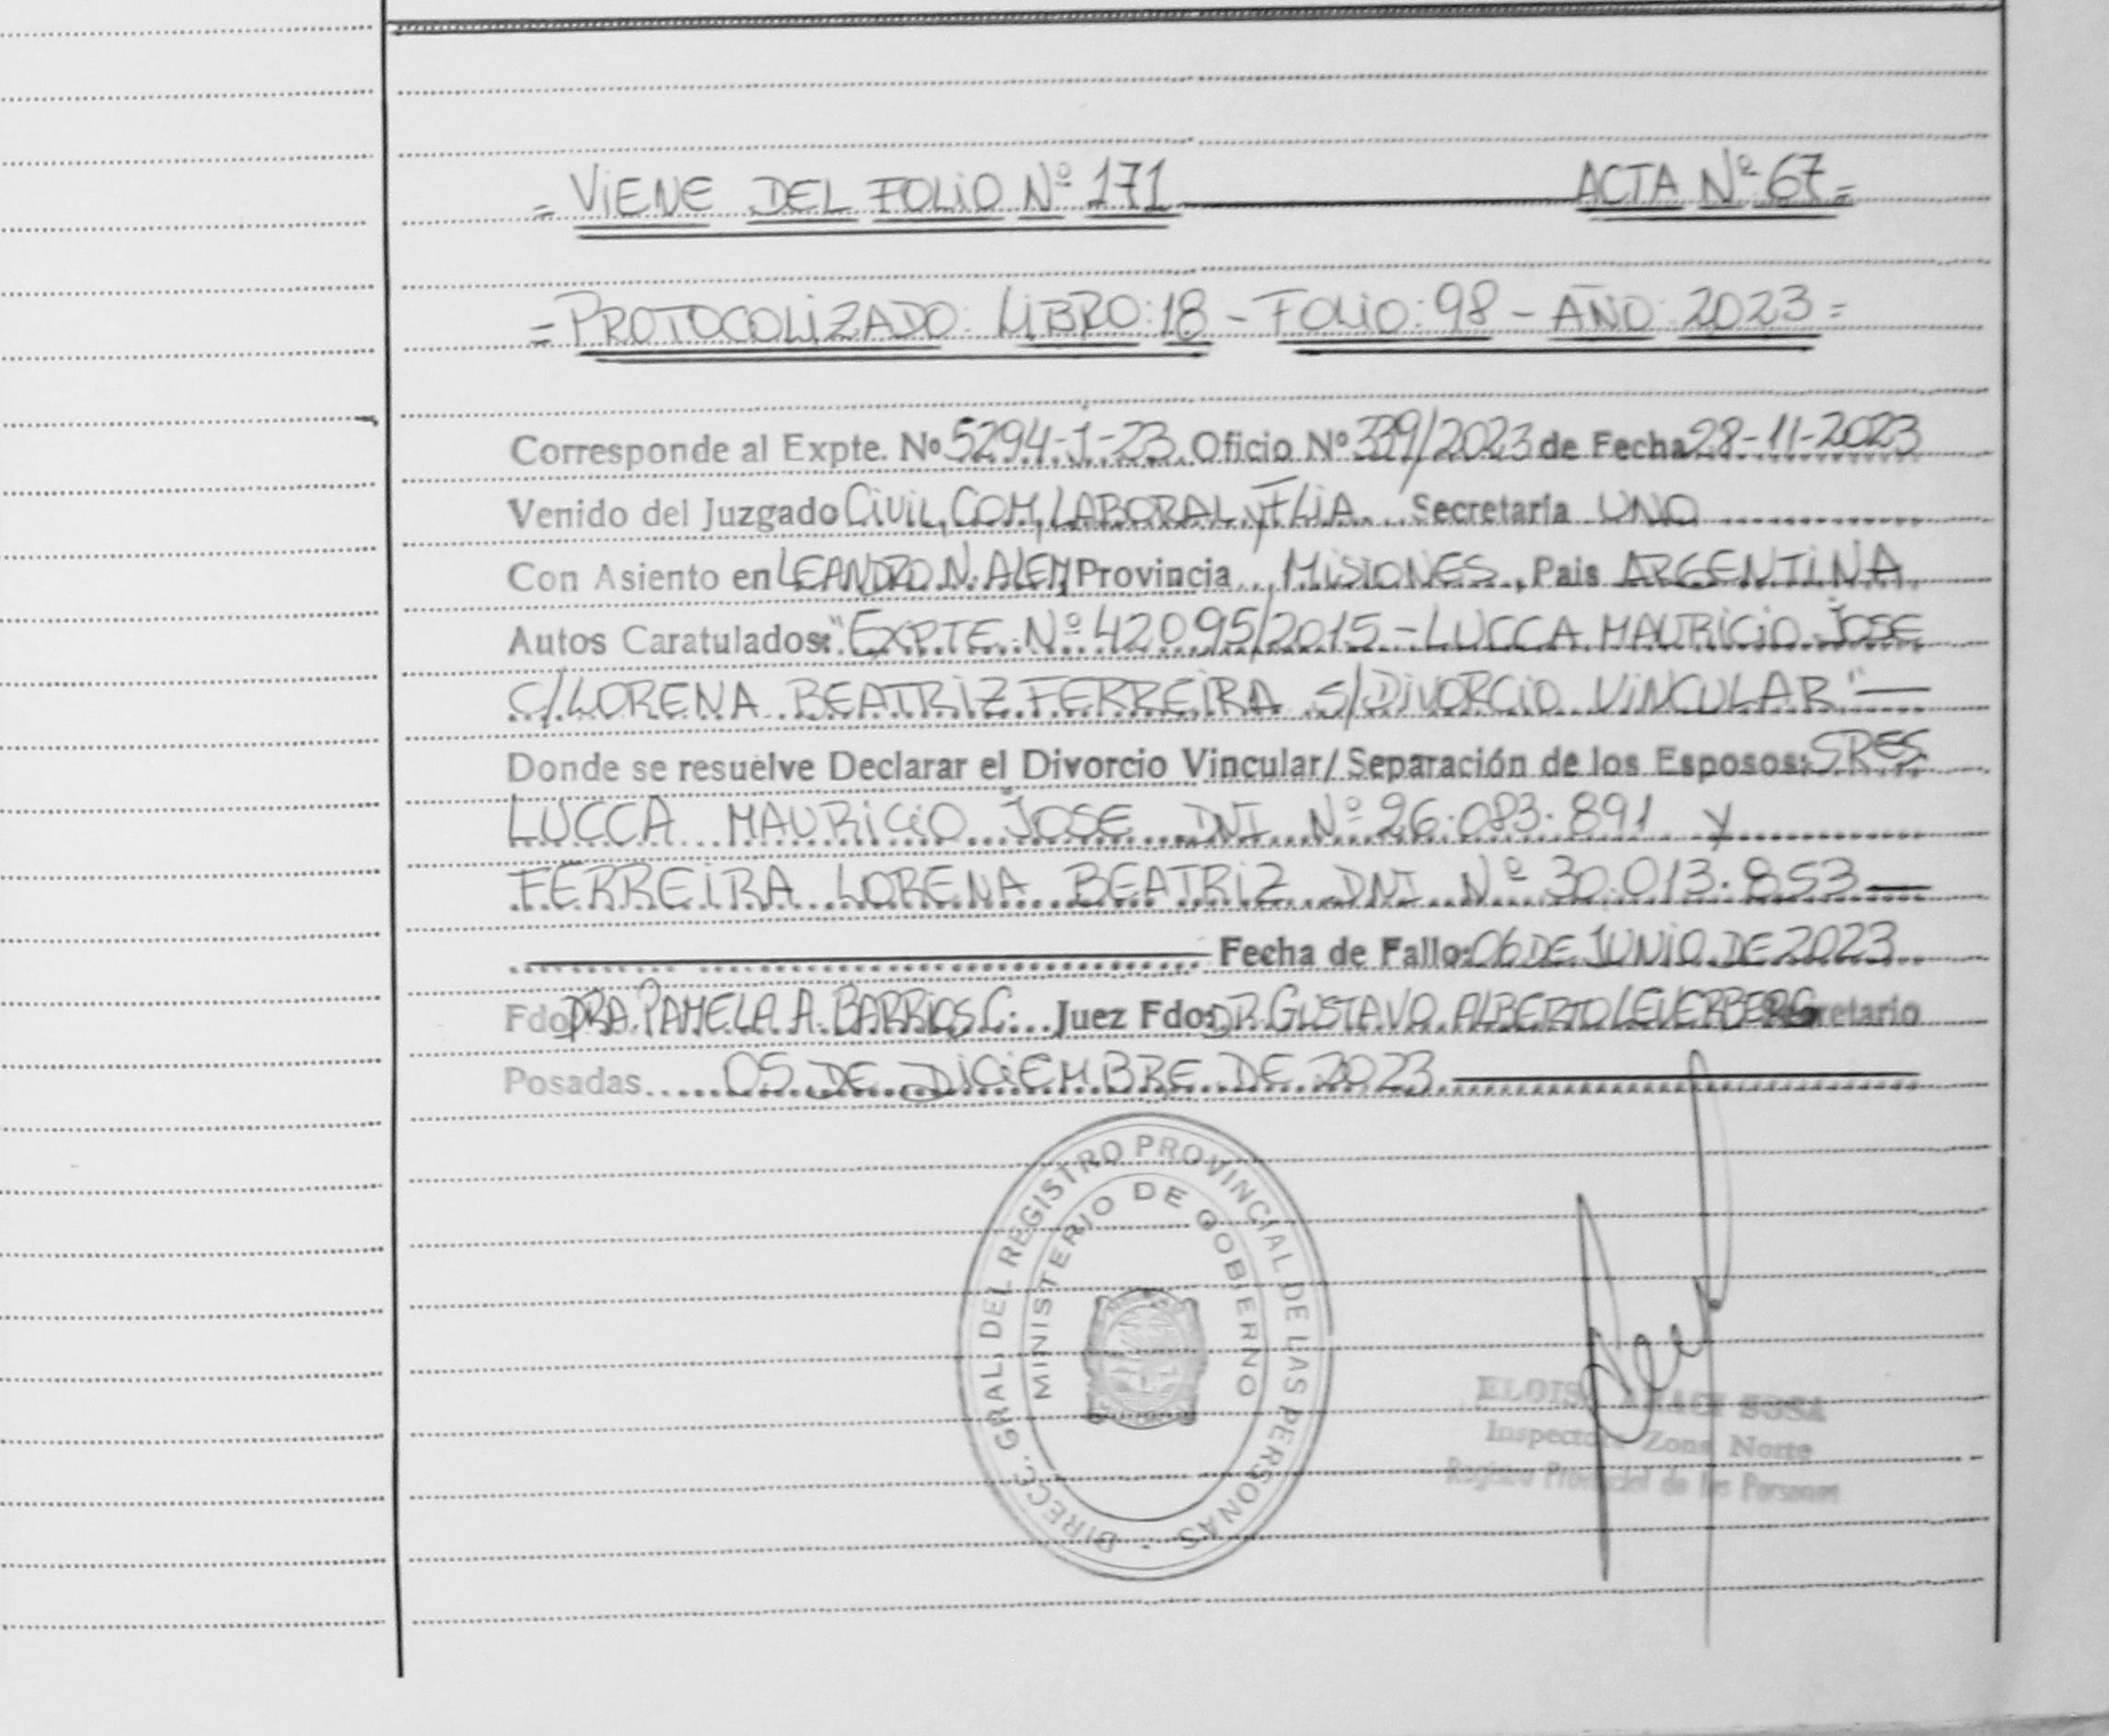 = VIENE DEL FOLIO Nº 171 ACTA Nº 67 =
= PROTOCOLIZADO: LIBRO: 18 - FOLIO: 98 - AÑO: 2023 =
Corresponde al Expte. Nº 5294-J-23. Oficio Nº 339/2023 de Fecha 28-11-2023
Venido del Juzgado CIVIL, COM, LABORAL y FLIA. Secretaría UNO
Con Asiento en LEANDRO N. ALEM, Provincia MISIONES, Pais ARGENTINA
Autos Caratulados: "EXPTE. Nº 42095/2015 - LUCCA MAURICIO JOSE
C/ LORENA BEATRIZ FERREIRA S/ DIVORCIO VINCULAR" —
Donde se resuelve Declarar el Divorcio Vincular/ Separación de los Esposos: SRES.
LUCCA MAURICIO JOSE DNI Nº 26.083.891 y
FERREIRA LORENA BEATRIZ DNI Nº 30.013.853 —
Fecha de Fallo: 06 DE JUNIO DE 2023
Fdo DRA. PAMELA A. BARRIOS C. Juez Fdo: DR. GUSTAVO ALBERTO LEVERBERG Secretario
Posadas 05 DE DICIEMBRE DE 2023
DIRECC. GRAL. DEL REGISTRO PROVINCIAL DE LAS PERSONAS
MINISTERIO DE GOBIERNO
SOSA
Inspectora Zona Norte
Registro Provincial de las Personas